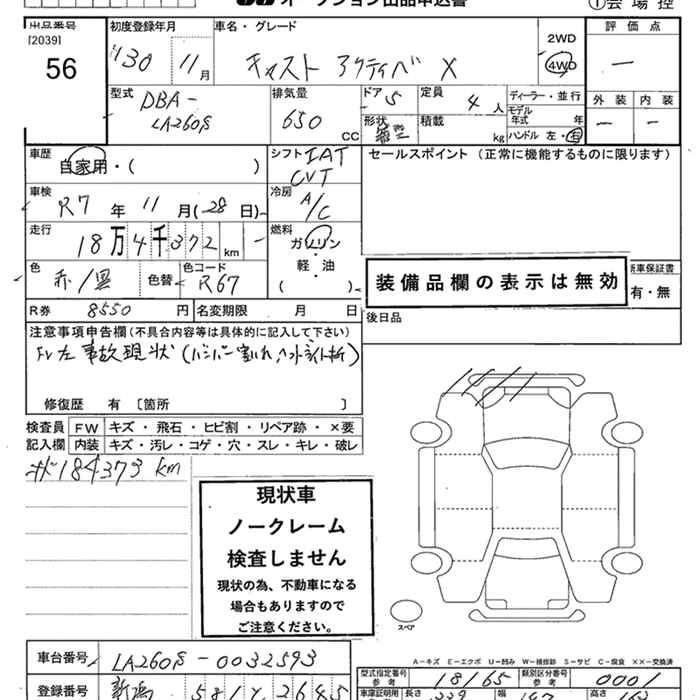 オークション出品申込書
①会場控
出品番号
[2039]
56
初度登録年月
H30 11月
車名・グレード
キャスト アクティバ X
2WD
4WD
評価点
ー
外装 内装
ー ー
型式
DBA-
LA260S
排気量
650 CC
ドア 5
形状
定員 4 人
積載 kg
ディーラー・並行
モデル
年式 年
ハンドル 左・右
車歴
自家用・( )
シフト IAT
CVT
セールスポイント (正常に機能するものに限ります)
車検
R7 年 11 月(28 日)
冷房
A/C
走行
18万4千372 km
燃料
ガソリン
・
軽油
・
( )
色
赤/黒
色替
色コード
R67
装備品欄の表示は無効
新車保証書
有・無
R券 8550 円
名変期限 月 日
後日品
注意事項申告欄(不具合内容等は具体的に記入して下さい)
Fr左 事故現状 (バンパー割れ、ヘッドライト折)
修復歴 有 〔箇所 〕
検査員
記入欄
FW キズ・飛石・ヒビ割・リペア跡・×要
内装 キズ・汚レ・コゲ・穴・スレ・キレ・破レ
184373 km
現状車
ノークレーム
検査しません
現状の為、不動車になる
場合もありますので
ご注意ください。
スペア
A-キズ E-エクボ U-凹み W-補修跡 S-サビ C-腐食 XX-交換済
車台番号 LA260S-0032593
型式指定番号
参考
18165
類別区分番号
参考
0001
登録番号 新潟 581 2645
車庫証明用
参考
長さ 339
幅 147
高さ 163